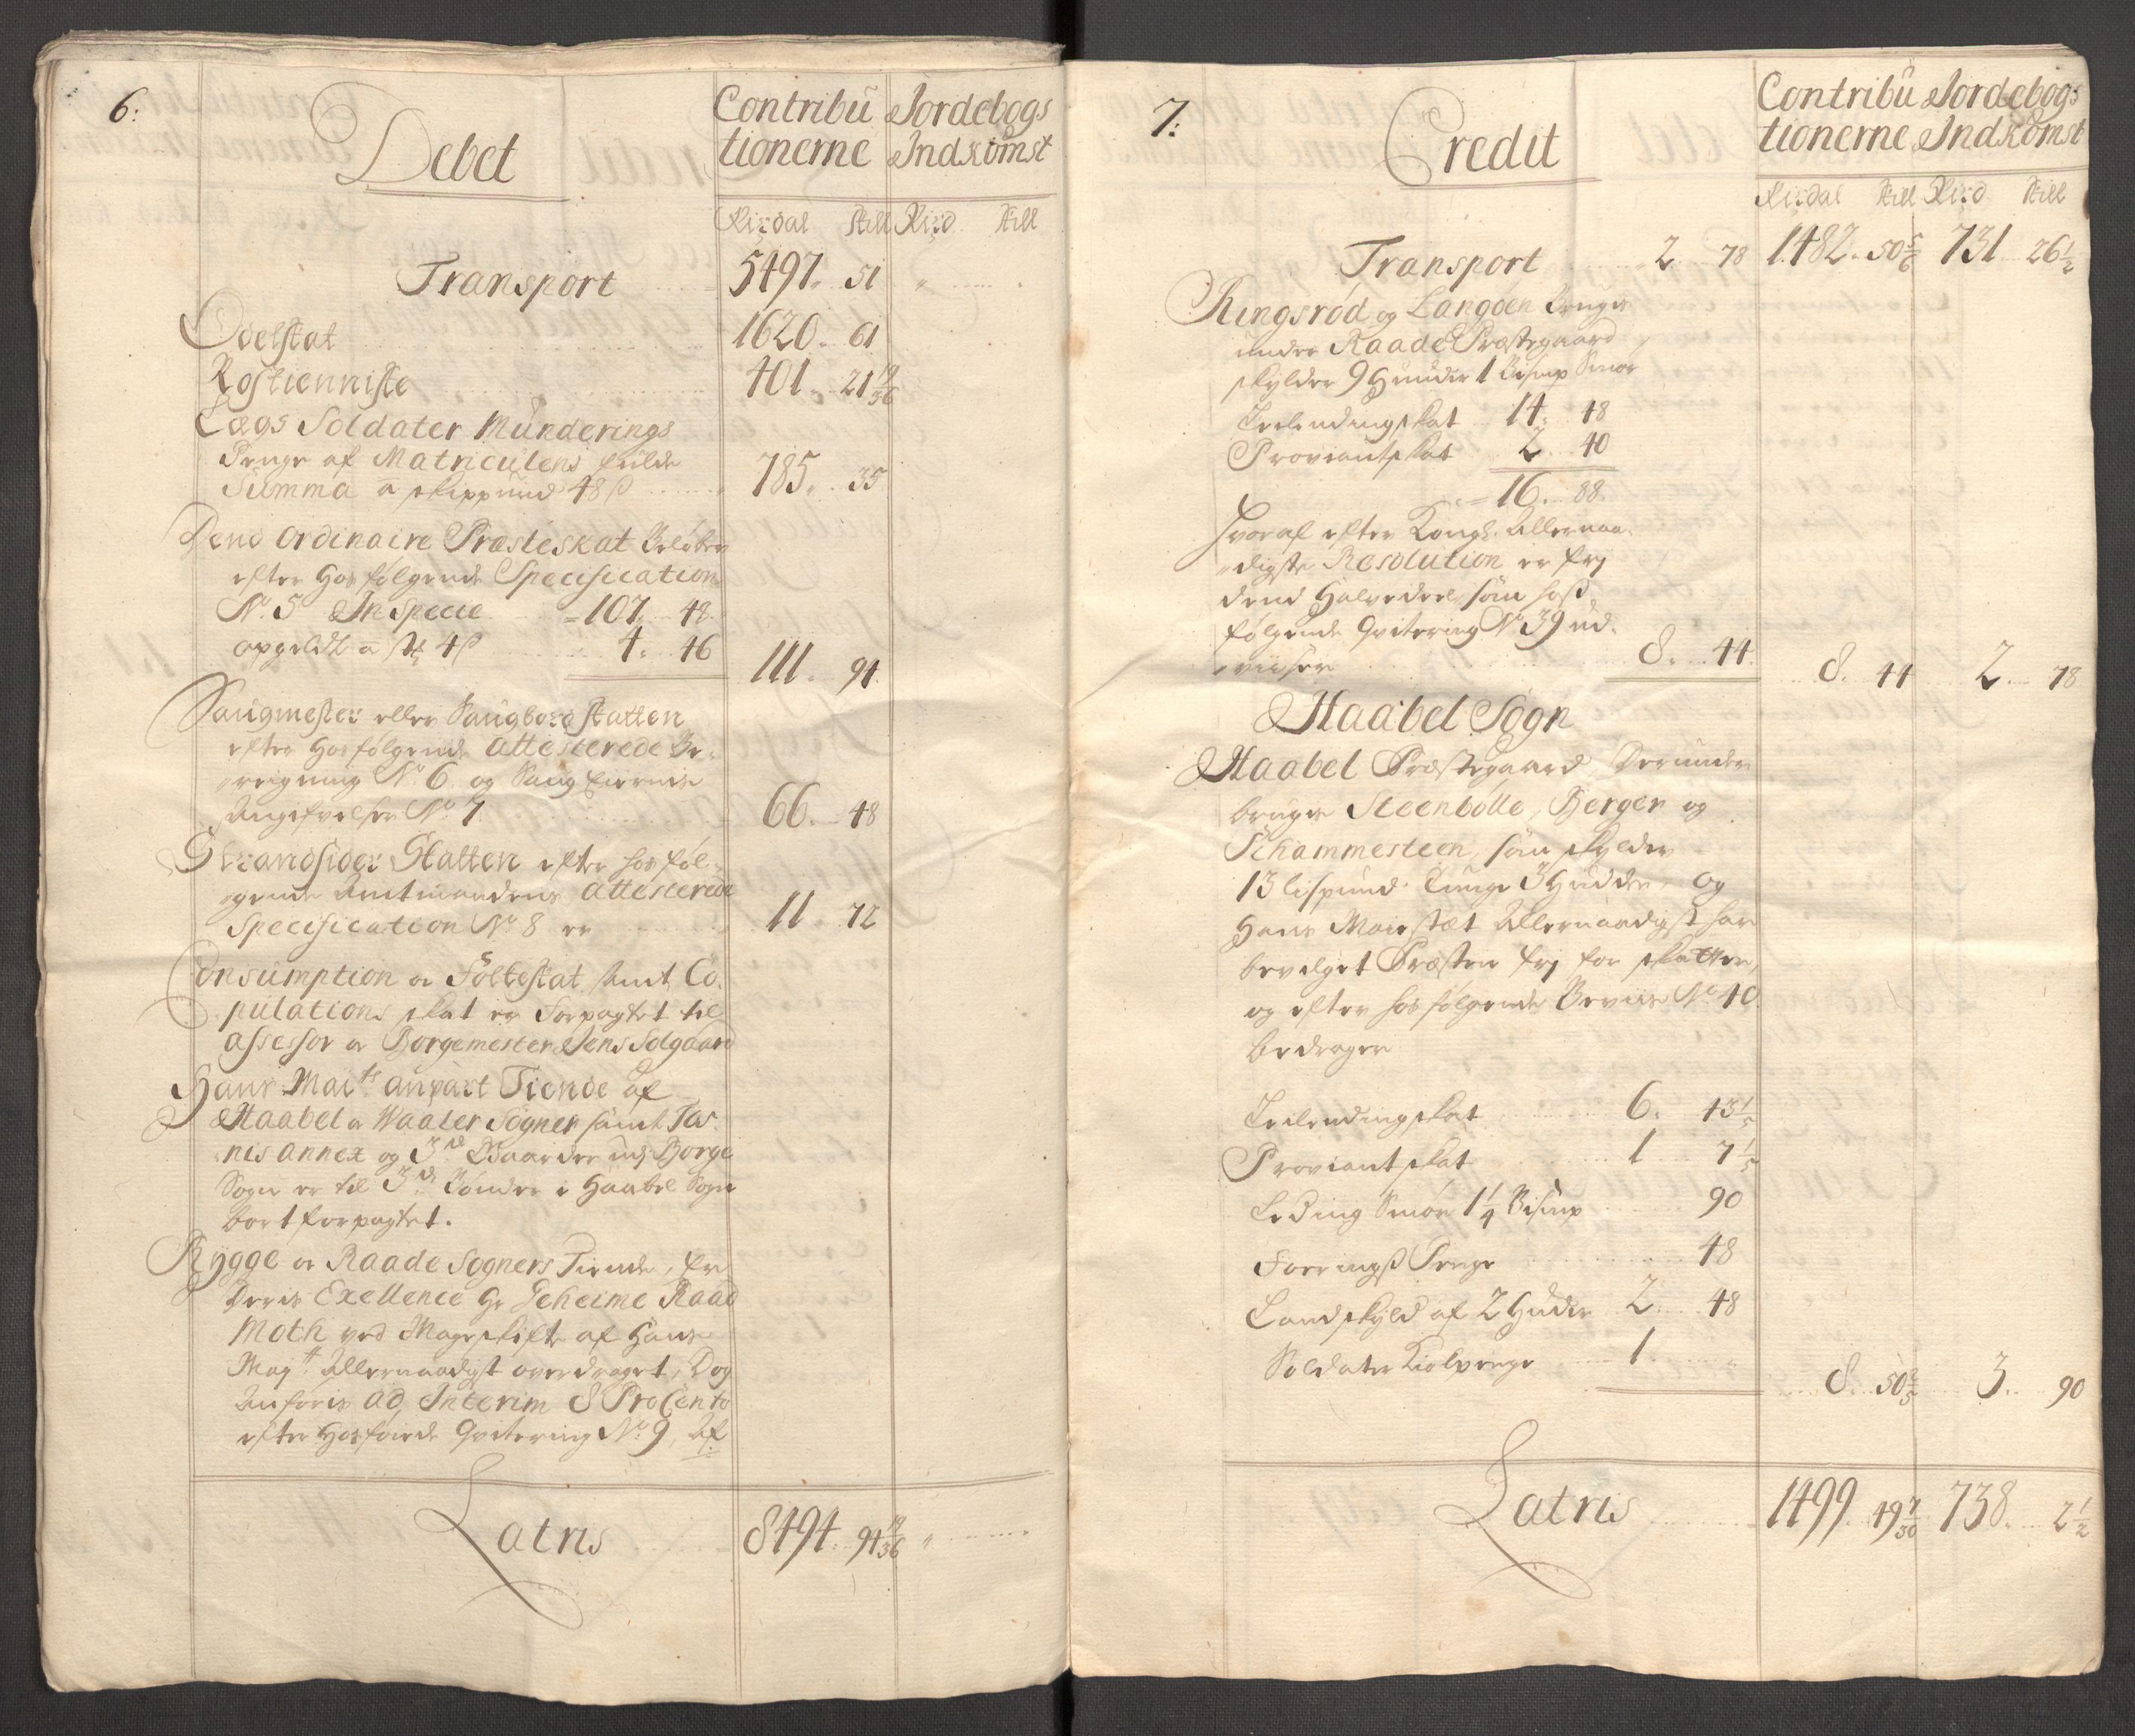 6:
Debet
Contribu
tionerne
Jordebogs
Indkomst
Rixdal skill Rixd skill
Transport 5497. 51 " "
Odelskat 1620. 61
Rostienniste 401. 21 19/36
Lægs Soldater Munderings
Penge af Matriculens fulde
Summa a skippund 48 ß 785. 35
Dend Ordinaire Præsteskat beløber
efter Hosfølgende Specification
No. 5 In Specie 107. 48.
opgeldt a Rdr 4 ß 4. 46
111. 94.
Saugmester eller Saugbord skatten
efter Hosfølgende Attesterede Be-
reigning No. 6 og Saug Eiernis
Angifvelser No. 7. 66. 48
Strandsider Skatten efter hos føl-
gende Amtmandens Attesterede
Specification No. 8 er 11. 72
Consumption og Folkeskat samt Co-
pulations skat er Forpagtet til
Assessor og Borgemester Jens Solgaard
Hans Maits anpart Tiende af
Haabel og Waaler Sogner samt Tos-
nis annex og 3de Gaarder udj Borge
Sogn er til 3de Bønder i Haabel Sogn
bortforpagtet.
Rygge og Raade Sogners Tiende, er
Deris Exellence Hr Geheime Raad
Moth ved Mageskifte af Hans
Majt Allernaadigst overdraget, Dog
Anføris ad Interim 8 ProCento
efter Hosføiede Qvitering No. 9, Af
Latris 8494. 94 19/36 " "
7:
Credit
Contribu
tionerne
Jordebogs
Indkomst
Rixdal skill Rixd skill
Transport 2 78 1482. 50 5/6 731 26 1/2
Ringsrød og Langøen bruges
under Raade Præstegaard,
skylder 9 Hunder 1 Bismp Smør
Leilendingskat 14. 48
Proviantskat 2. 40
16. 88.
Hvoraf efter Kongl. Allernaa-
digste Resolution er frj
dend Halvedeel, som hoß
følgende Qvitering No. 39 ud-
viiser 8. 44. 8. 44 2. 78
Haabel Sogn
Haabel Præstegaard, Derunder
bruges Steenbølle, Berger og
Schammesteen, som skylder
13 lispund Tunge 3 Hudder, og
Hans Maiestæt Allernaadigst har
bevilget Præsten frj for skatter,
og efter hosfølgende Beviis No. 40
bedrager
Leilendingskat 6. 43 1/5
Proviantskat 1 7 1/5
Leding Smør 1 1/4 Bismp 90
Foeringß Penge 48
Landskyld af 2 Huder 2. 48
Soldater Kiolpenge 1 "
8. 50 2/5 3. 90
Latris 1499. 49 7/30 738. 2 1/2